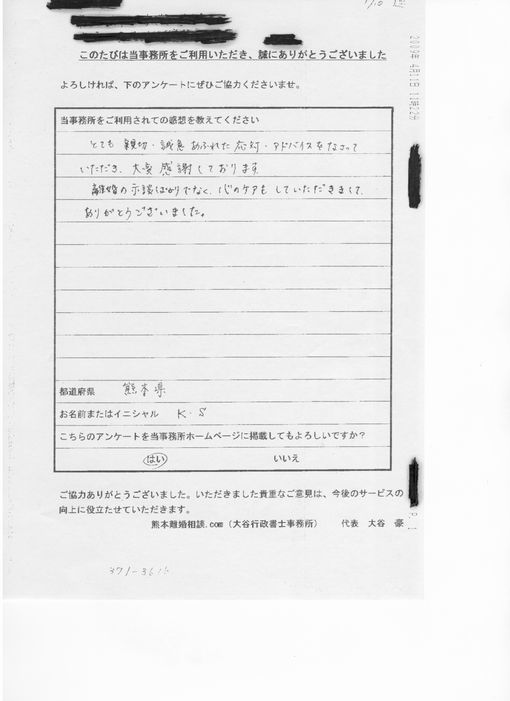 このたびは当事務所をご利用いただき、誠にありがとうございました
よろしければ、下のアンケートにぜひご協力くださいませ。
当事務所をご利用されての感想を教えてください
とても 親切・誠意 あふれた 応対・アドバイスをなさって
いただき、大変 感謝しております。
離婚の示談ばかりでなく、心のケアも していただきまして、
ありがとうございました。
都道府県 熊本県
お名前またはイニシャル K・S
こちらのアンケートを当事務所ホームページに掲載してもよろしいですか？
はい いいえ
ご協力ありがとうございました。いただきました貴重なご意見は、今後のサービスの
向上に役立たせていただきます。
熊本離婚相談.com（大谷行政書士事務所） 代表 大谷 豪
2009年 4月11日 11時22分
P. 1